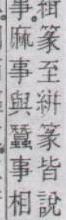 緝篆至絣篆皆說
事。麻事與蠶事相